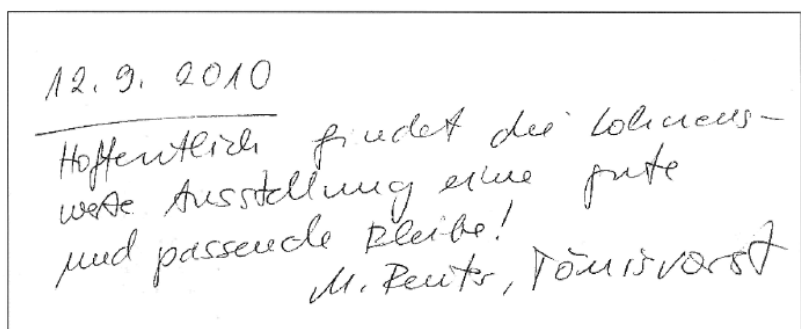 12. 9. 2010
Hoffentlich findet die lohnens-
werte Ausstellung eine gute
und passende Bleibe!
M. Reuts, Tönisvorst